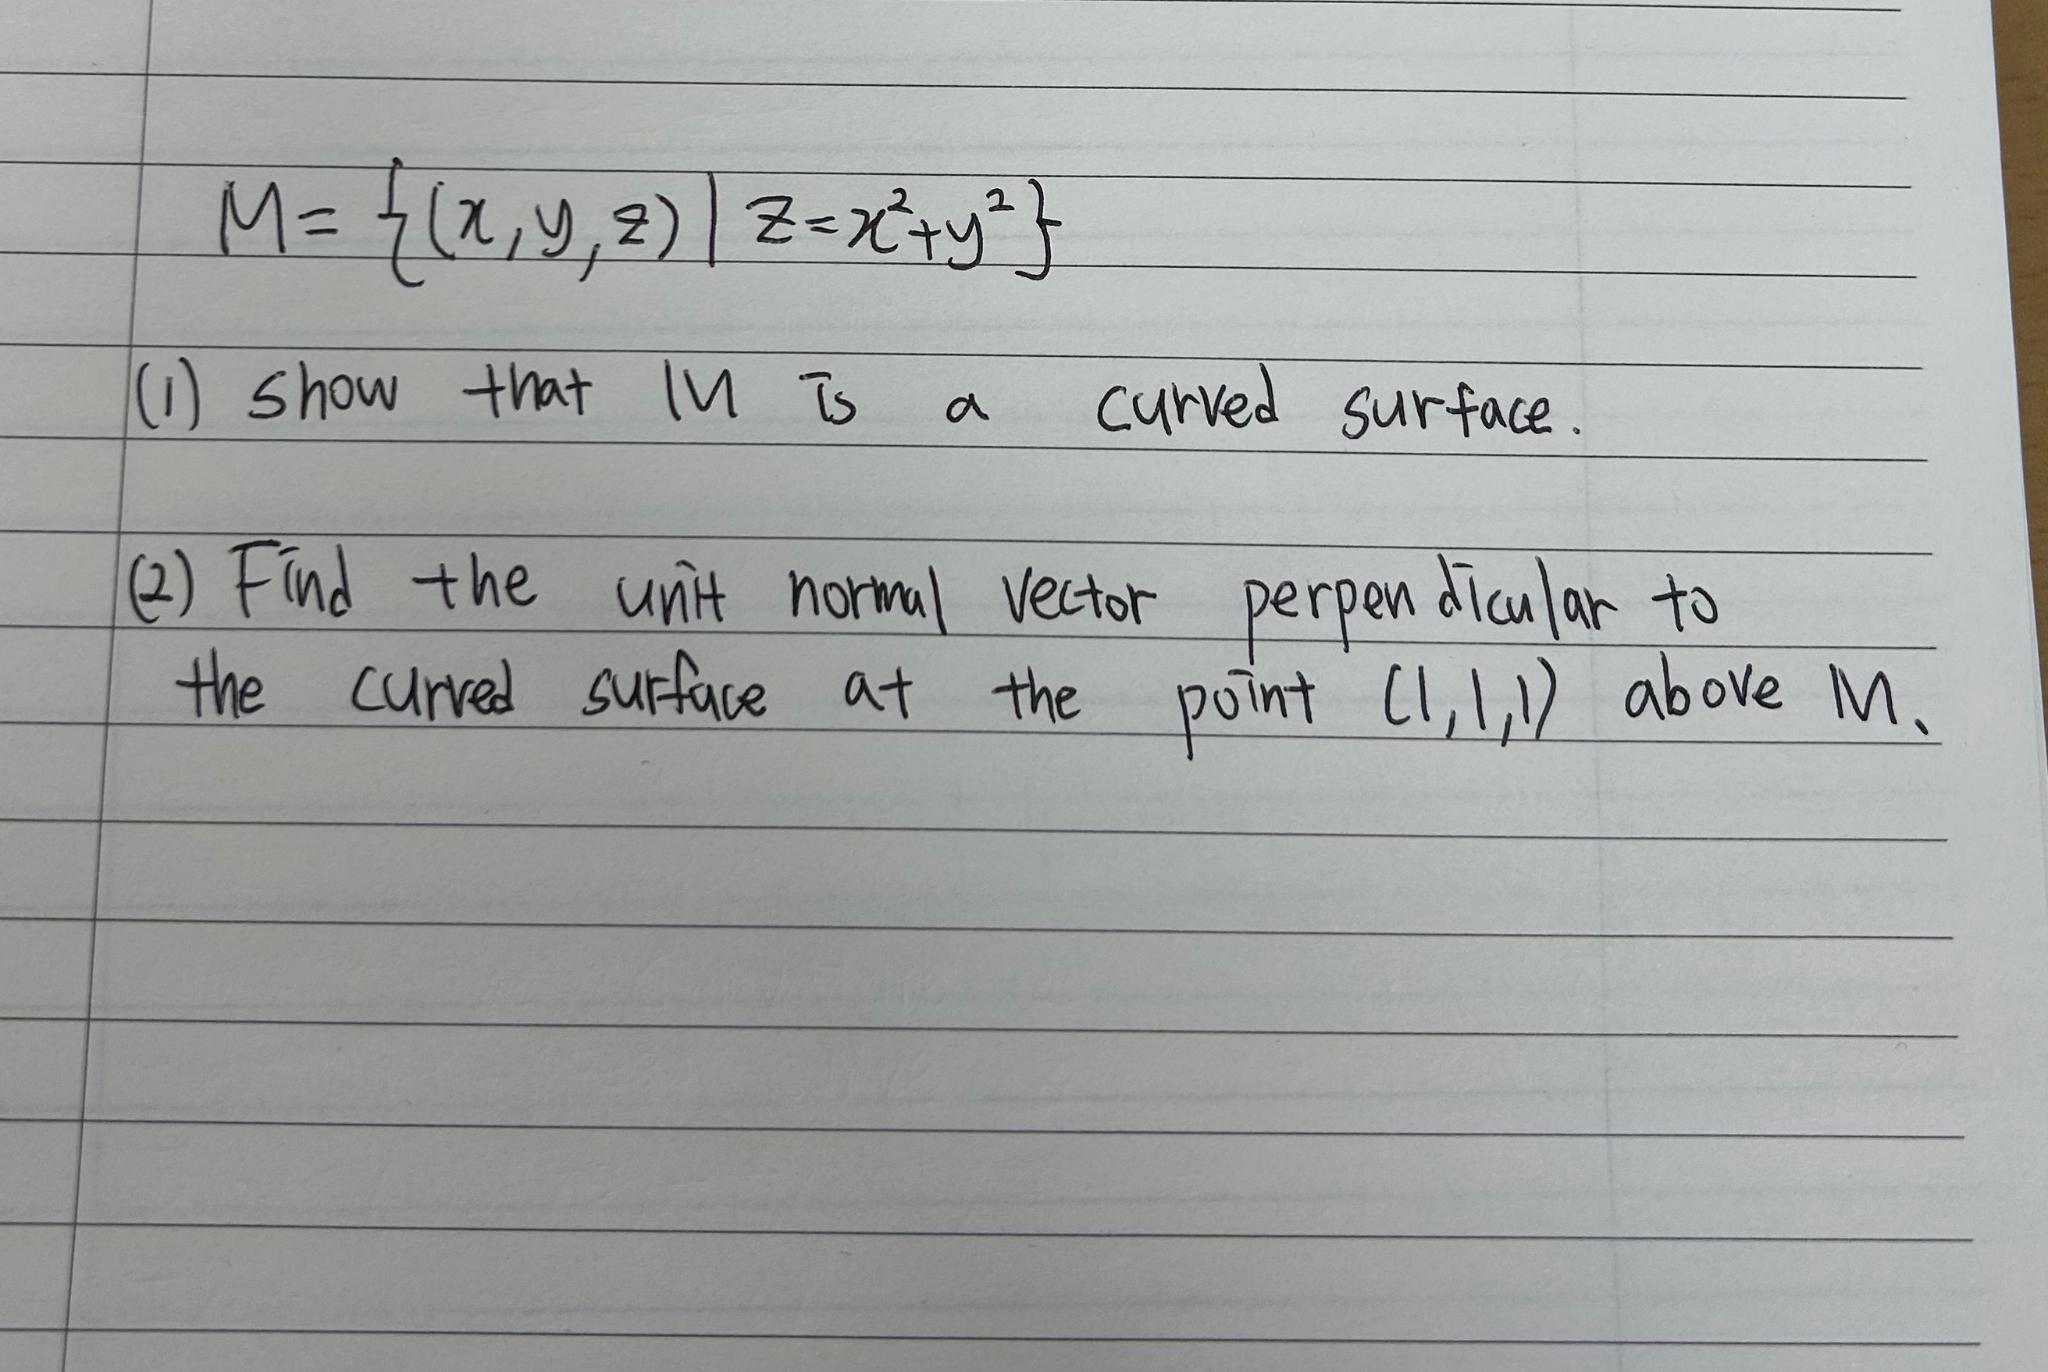 M = {(x, y, z) | z = x²+y²}
(1) show that M is a curved surface.
(2) Find the unit normal vector perpendicular to
the curved surface at the point (1,1,1) above M.